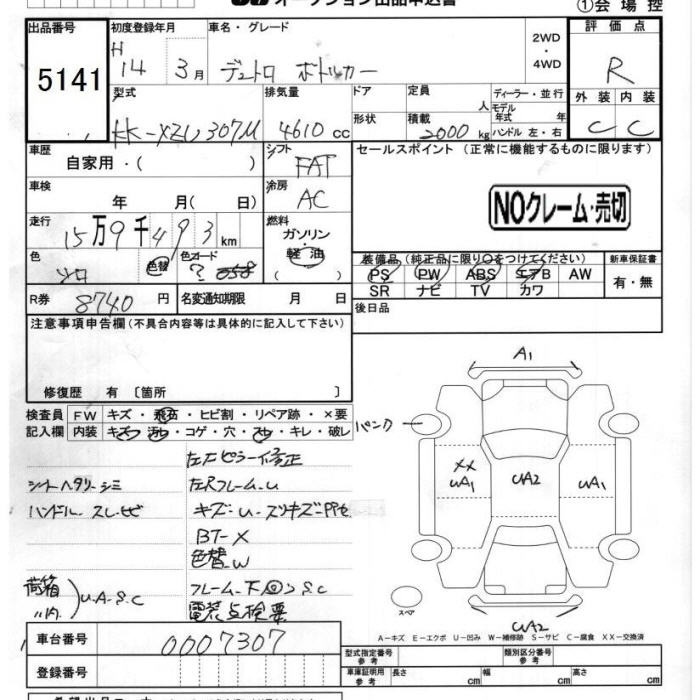 オークション出品申込書
①会場控
出品番号
初度登録年月
車名・グレード
2WD
・
4WD
評価点
5141
H
14 3月
デュトロ ボトルカー
R
型式
排気量
ドア
定員
人
ディーラー・並行
モデル
年式 年
外装 内装
KK-XZU307M
4610 cc
形状
積載
2000 kg
ハンドル 左・右
C C
車歴
自家用・( )
シフト
FAT
セールスポイント (正常に機能するものに限ります)
車検
年 月( 日)
冷房
AC
NOクレーム・売切
走行
15万9千493km
燃料
ガソリン・
軽油
( )
色
シロ
色替
色コード
? 058
装備品(純正品に限り○をつけてください)
新車保証書
PS PW ABS エアB AW
SR ナビ TV カワ
有・無
R券
8740 円
名変通知期限 月 日
後日品
注意事項申告欄(不具合内容等は具体的に記入して下さい)
修復歴 有 〔箇所 〕
A1
検査員
記入欄
FW キズ・飛石・ヒビ割・リペア跡・×要
内装 キズ・汚れ・コゲ・穴・スレ・キレ・破レ
パンク
左Fピラー修正
XX
UA1
UA2
UA1
シートヘタリ・シミ
左Rフレーム-U
ハンドル スレ・ヒビ
キズ・U・スリキズ
BT-X
色替-W
荷箱
〃内
U・A・S・C
フレーム・下回り S.C
電荒点検要
スペア
UA2
A-キズ E-エクボ U-凹み W-補修跡 S-サビ C-腐食 XX-交換済
車台番号
0007307
登録番号
型式指定番号
参考
類別区分番号
参考
車庫証明用
参考
長さ cm
幅 cm
高さ cm